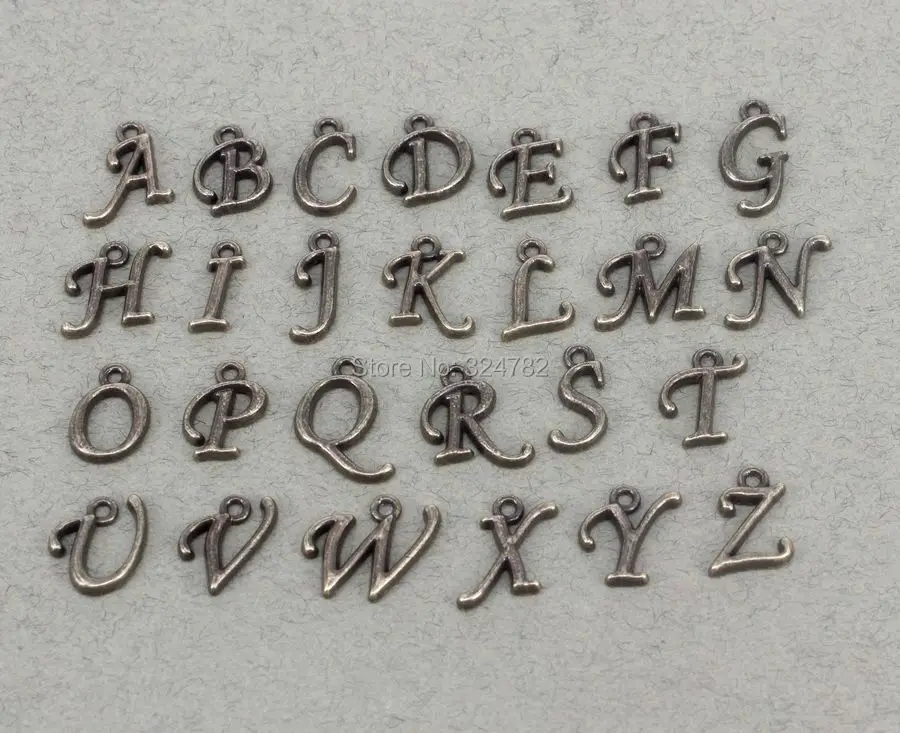 A B C D E F G
H I J K L M N
Store No: 324782
O P Q R S T
U V W X Y Z